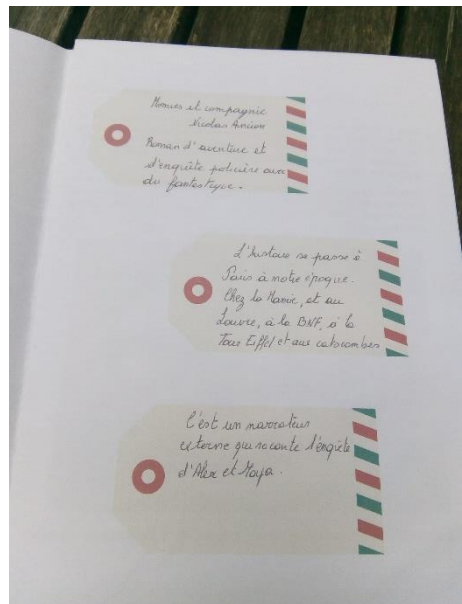 Momies et compagnie
Nicolas Ancion
Roman d'aventure et
d'enquête policière avec
du fantastique.
L'histoire se passe à
Paris à notre époque.
Chez la Mamie, et au
Louvre, à la BNF, à la
Tour Eiffel et aux catacombes
C'est un narrateur
externe qui raconte l'enqête
d'Alex et Maya.